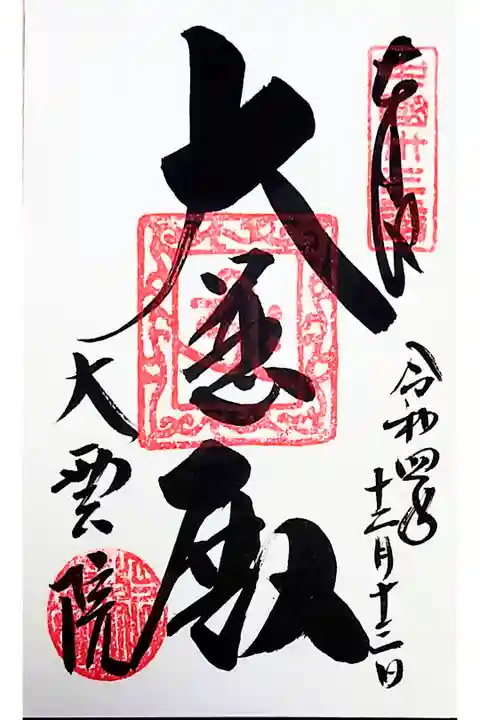 奉拝
中国十三番
令和四年
十二月十三日
大悲殿
大雲院